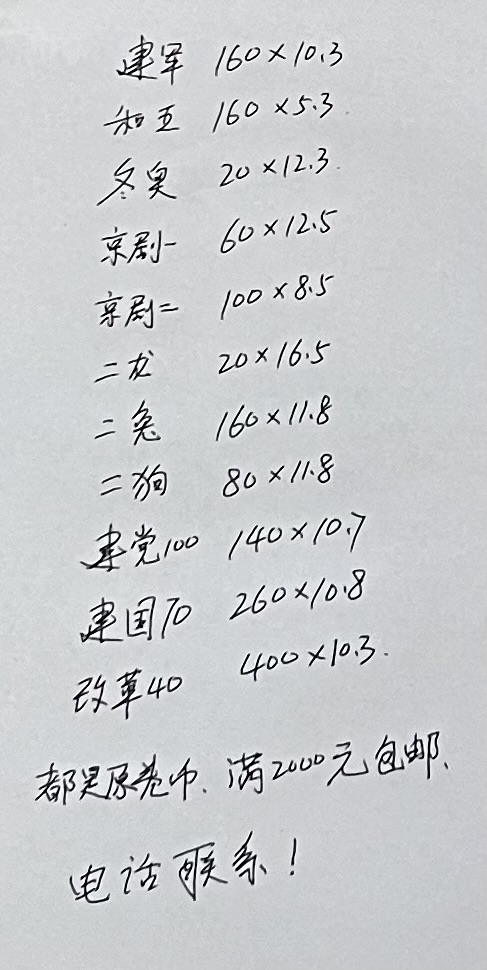 建军 160×10.3
和五 160×5.3
冬奥 20×12.3
京剧一 60×12.5
京剧二 100×8.5
二龙 20×16.5
二兔 160×11.8
二狗 80×11.8
建党100 140×10.7
建国70 260×10.8
改革40 400×10.3
都是原卷币、满2000元包邮、
电话联系！